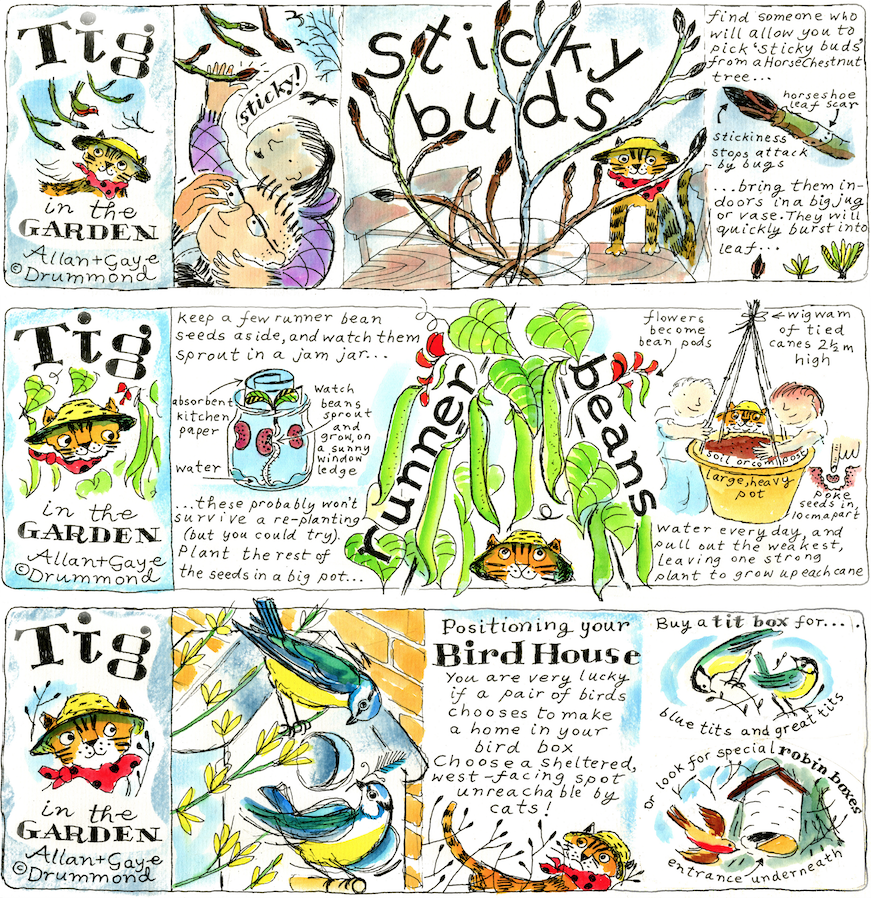 Tig
in the
GARDEN
Allan+Gaye
©Drummond
sticky!
sticky
buds
find someone who
will allow you to
pick 'sticky buds'
from a Horse Chestnut
tree...
horseshoe
leaf scar
stickiness
stops attack
by bugs
...bring them in-
doors in a big jug
or vase. They will
quickly burst into
leaf...
Tig
in the
GARDEN
Allan+Gaye
©Drummond
keep a few runner bean
seeds aside, and watch them
sprout in a jam jar...
absorbent
kitchen
paper
water
watch
beans
sprout
and
grow, on
a sunny
window
ledge
...these probably won't
survive a re-planting
(but you could try).
Plant the rest of
the seeds in a big pot...
runner
beans
flowers
become
bean pods
wigwam
of tied
canes 2½m
high
soil or compost
large, heavy
pot
poke
seeds in,
10cm apart
water every day, and
pull out the weakest,
leaving one strong
plant to grow up each cane
Tig
in the
GARDEN
Allan+Gaye
©Drummond
Positioning your
Bird House
You are very lucky
if a pair of birds
chooses to make
a home in your
bird box
Choose a sheltered,
west-facing spot
unreachable by
cats!
Buy a tit box for...
blue tits and great tits
or look for special robin boxes
entrance underneath